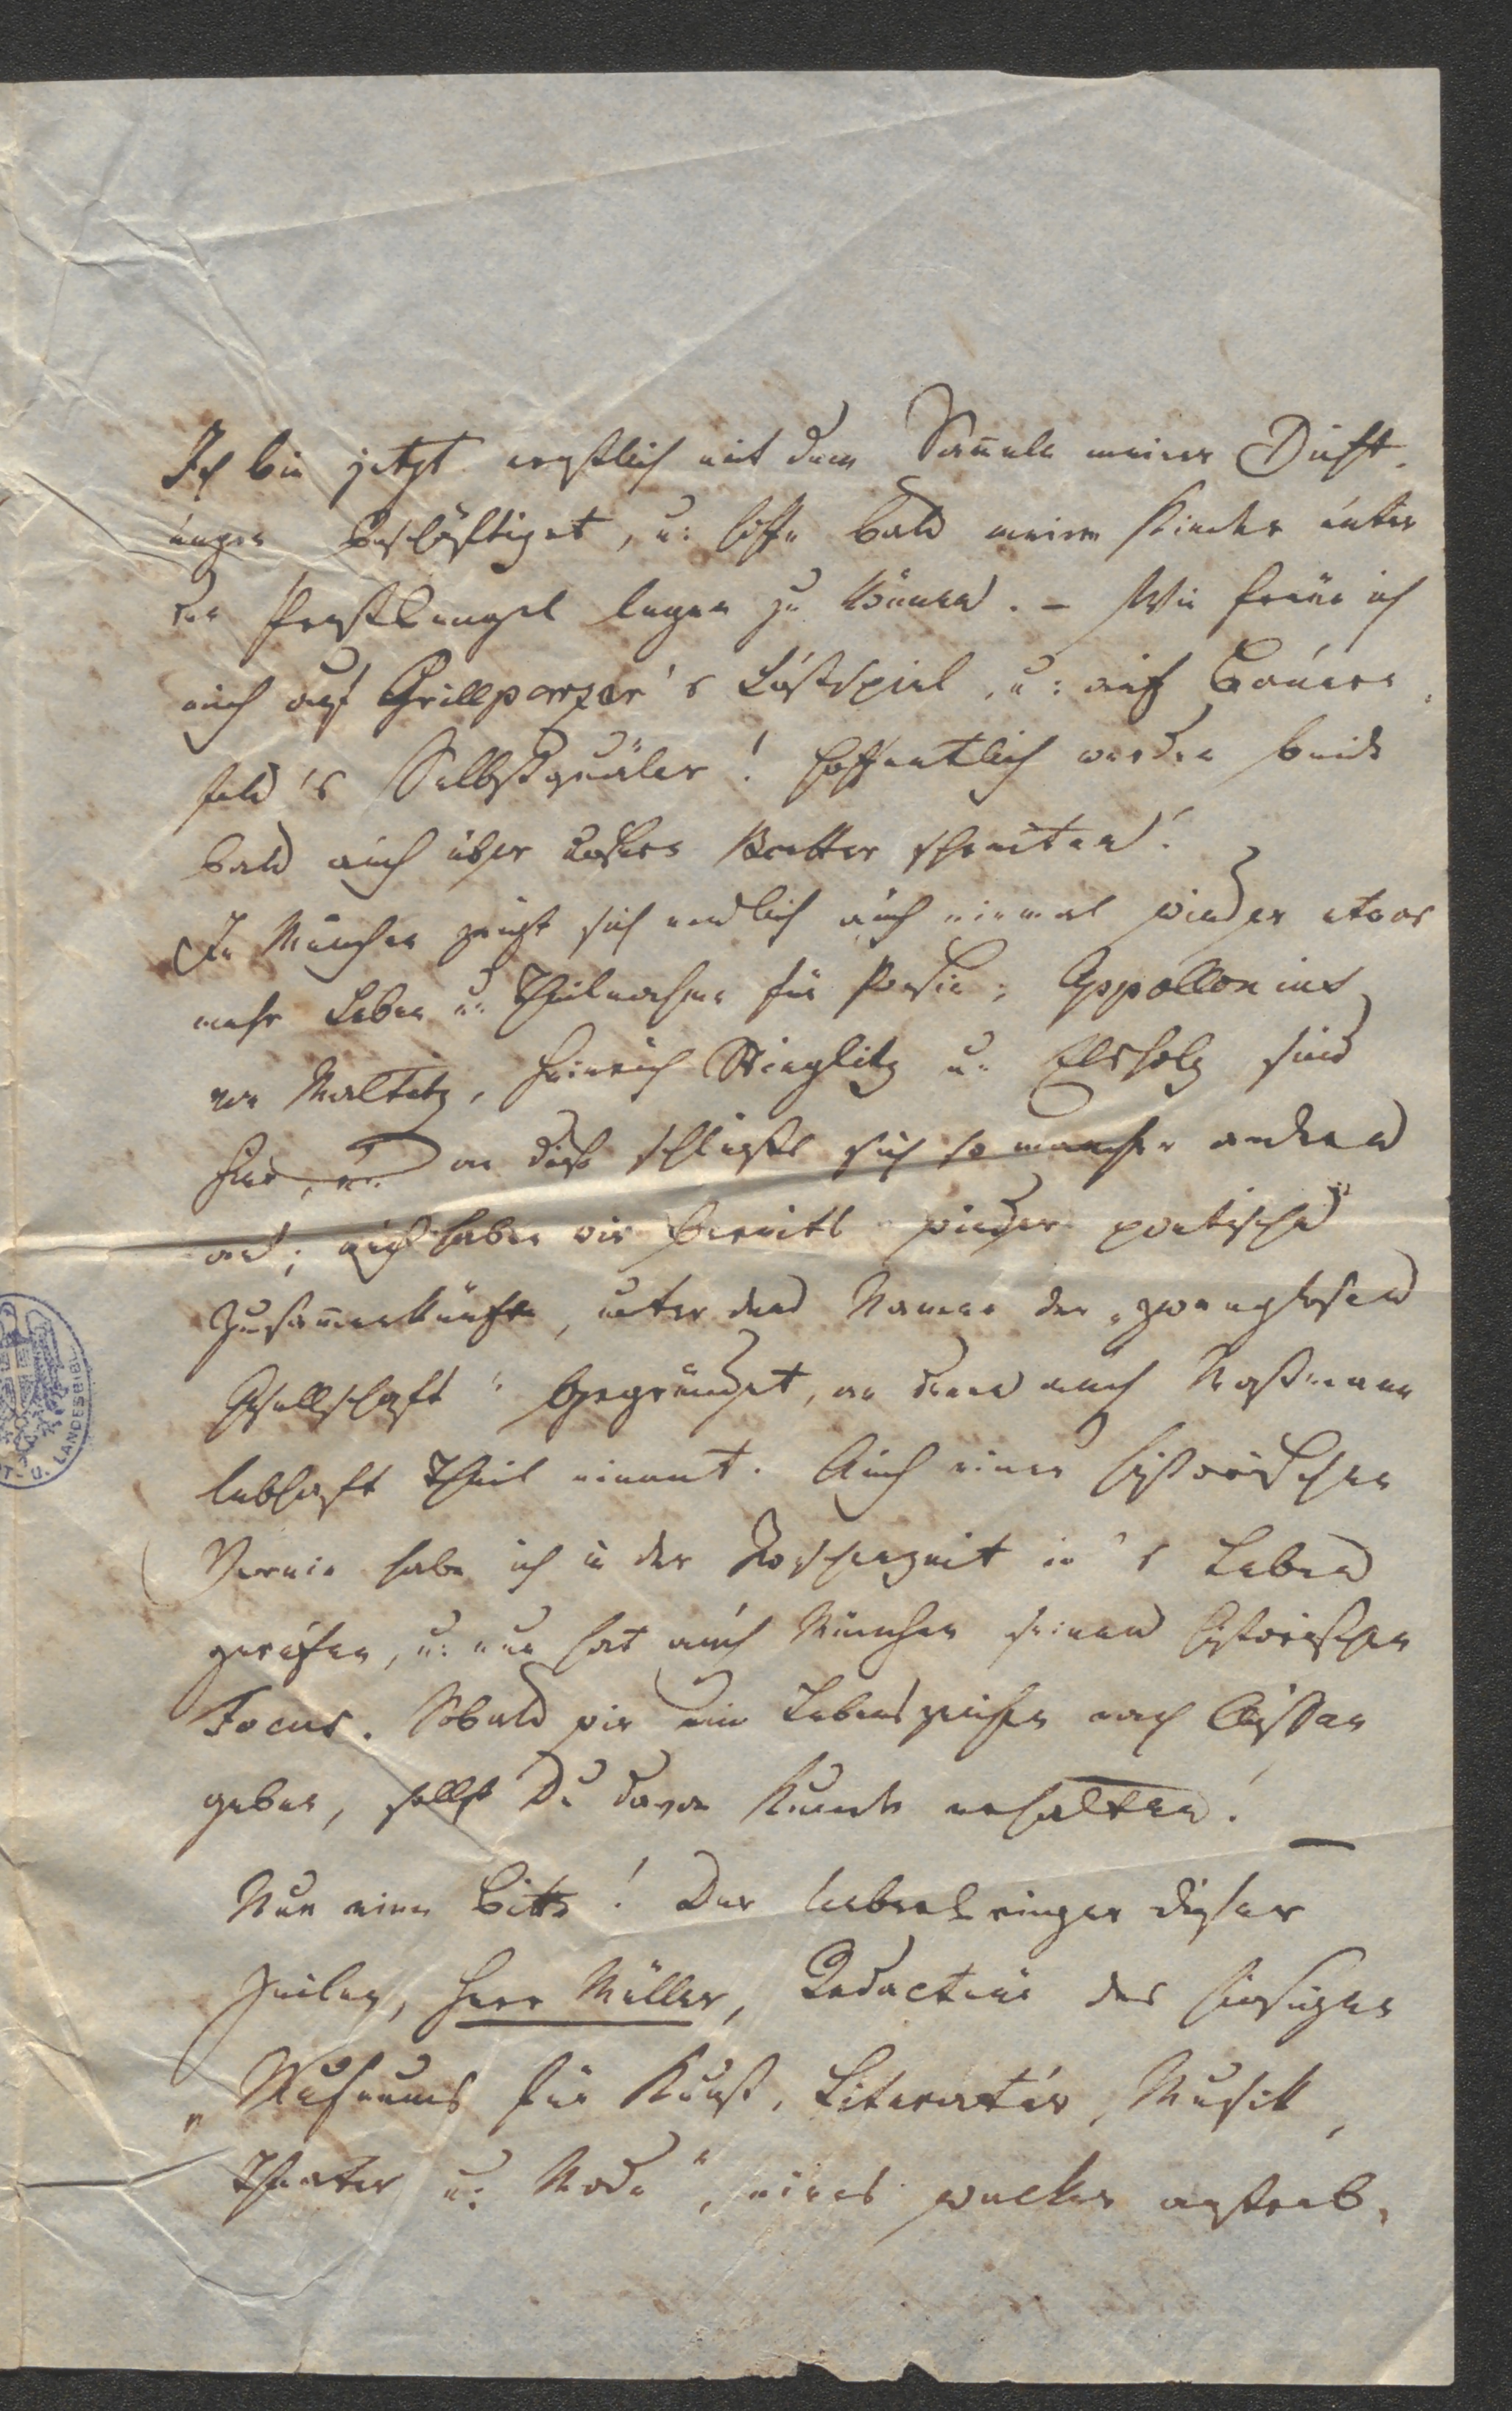 Ich bin jetzt ernstlich mit dem Sam̄eln meiner Dicht-
ungen beschäftiget, u: hoffe bald meine Kinder unter
den Preßbengel legen zu können. – Wie freue ich
mich auf Grillparzer's Lustspiel, u: auf Bauern-
feld's Selbstquäler! Hoffentlich werden beide
bald auch über unsere Bretter schreiten!
In München zeigt sich endlich auch einmal wieder etwas
mehr Leben u: Theilnahme für Poesie; Appollonius
von Maltitz, Heinrich Stieglitz u: Elsholz sind
hier, u: an diese schließt sich so mancher andere
an; auch haben wir bereits wieder poetische
Zusam̄enkünfte, unter dem Namen der „zwanglosen
Gesellschaft" gegründet, an denen auch Maßmann
lebhaft Theil nimmt. Auch einen historischen
Verein habe ich in der Zwischenzeit in's Leben
gerufen, u: nun hat auch München seinen historischen
Focus. Sobald wir ein Lebenszeichen nach Außen
geben, sollst Du davon Kunde erhalten! –
Nun eine Bitte! Der Ueberbringer dieser
Zeilen, Herr Müller, Redacteur des hiesigen
„Museums für Kunst, Literatur, Musik,
Theater u: Mode", eines wacker anstreb-
T. U. LANDESBIBL.